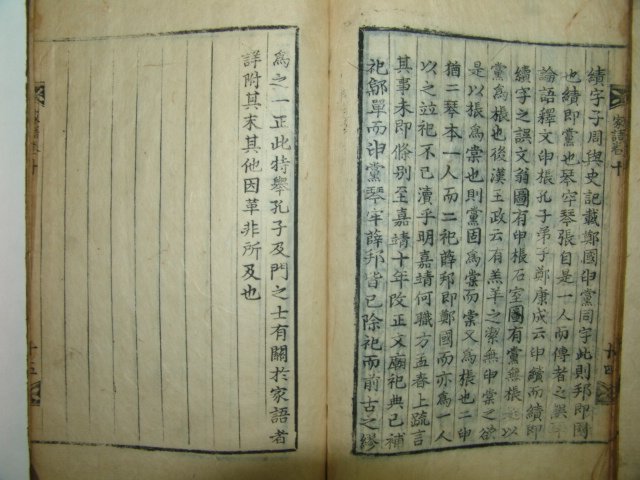 績字子周與史記載鄭國申黨同字此則邦即國
也績即黨也琴牢琴張自是一人而傳者之異耳
論語釋文申棖孔子弟子鄭康成云申續而續即
績字之誤文翁圖有申棖石室圖有黨無棖以
黨為棖也後漢王政云有羔羊之潔無申棠之欲
是以棖為棠也則黨固為棠而棠又為棖也二申
猶二琴本一人而二祀薛邦即鄭國而亦為一人
以之竝祀不已瀆乎明嘉靖何職方孟春上䟽言
其事未即條別至嘉靖十年改正文廟祀典已補
祀鄡單而申黨琴牢薛邦皆已除祀而前古之繆
為之一正此特舉孔子及門之士有關於家語者
詳附其末其他因革非所及也
家語卷十
十四
家語卷十
十五